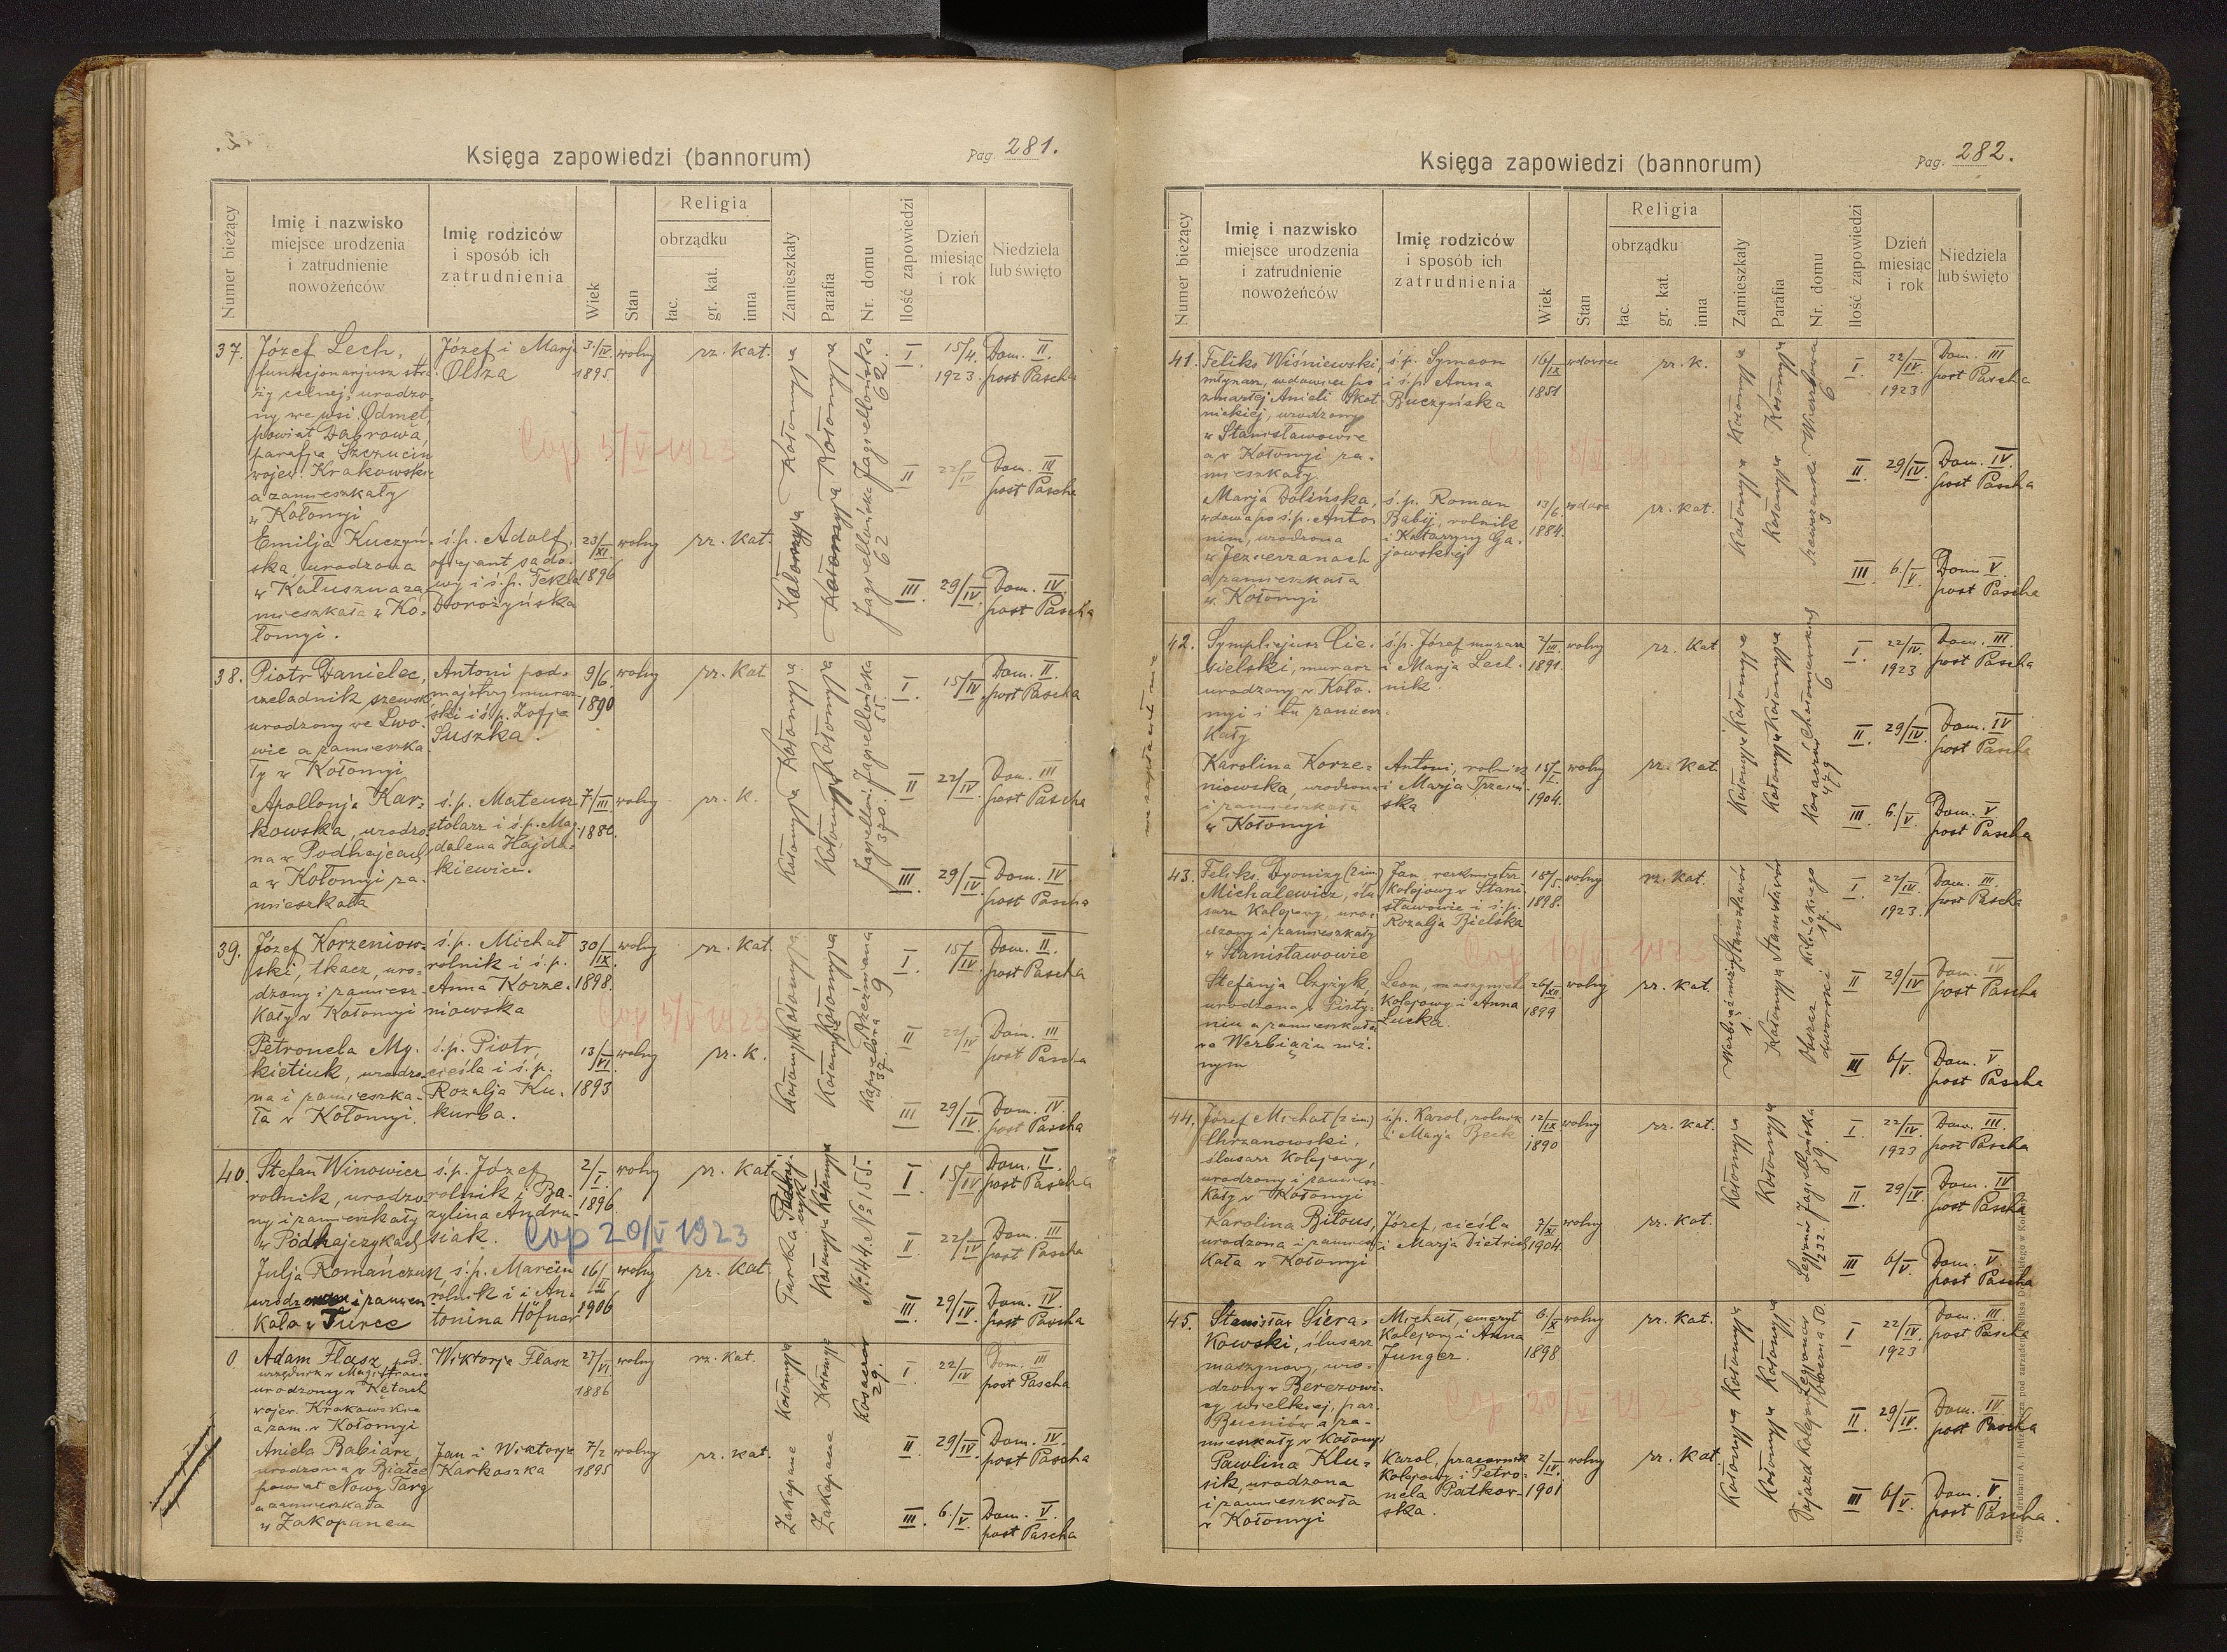 Księga zapowiedzi (bannorum)
Pag. 281.
Numer bieżący
Imię i nazwisko
miejsce urodzenia
i zatrudnienie
nowożeńców
Imię rodziców
i sposób ich
zatrudnienia
Wiek
Stan
Religia
obrządku
łac.
gr. kat.
inna
Zamieszkały
Parafia
Nr. domu
Ilość zapowiedzi
Dzień
miesiąc
i rok
Niedziela
lub święto
37.
Józef Lech,
funkcjonarjusz stra-
ży celnej, urodzo-
ny we wsi Odmęt,
powiat Dąbrowa,
parafja Szczucin
wojew. Krakowskie
a zamieszkały
w Kołomyi
Józef i Marja
Olsza
3/IV
1895.
wolny
rz. kat.
Kołomyja
Kołomyja
Jagiellońska
62.
I
15/4.
1923.
Dom. II.
post Pascha
Cop 5/V 1923
II
22/IV
Dom. III
post Pascha
Emilja Kuczyń-
ska, urodzona
w Kałuszu a za-
mieszkała w Ko-
łomyi.
ś.p. Adolf,
oficjant sądo-
wy i ś.p. Tekla
Dorożyńska
23/XI.
1896
wolny
rz. kat.
Kołomyja
Kołomyja
Jagiellońska
62
III
29/IV.
Dom. IV
post Pascha
38.
Piotr Danielec,
czeladnik szewski
urodzony we Lwo-
wie a zamieszka-
ły w Kołomyi
Antoni pod-
majstrzy murar-
ski i ś.p. Zofja
Suszka.
9/6.
1890
wolny
rz. kat
Kołomyja
Kołomyja
Jagiellońska
55.
I
15/IV.
Dom. II.
post Pascha
II
22/IV.
Dom. III
post Pascha
Apollonja Kar-
kowska, urodzo-
na w Podhajcach
a w Kołomyi za-
mieszkała
ś.p. Mateusz
stolarz i ś.p. Mag-
dalena Hajdu-
kiewicz.
7/III
wolny
rz. k.
Kołomyja
Kołomyja
370.
III
29/IV.
Dom. IV
post Pascha
39.
Józef Korzeniow-
ski, tkacz, uro-
dzony i zamiesz-
kały w Kołomyi
ś.p. Michał
rolnik i ś.p.
Anna Korze-
niowska
30/IX.
1898.
wolny
rz. kat.
Kołomyja
Kołomyja
9
I
15/IV.
Dom. II.
post Pascha
Cop 5/V 1923
II
22/IV
Dom. III
post Pascha
Petronela My-
kietiuk, urodzo-
na i zamieszka-
ła w Kołomyi.
ś.p. Piotr,
cieśla i ś.p.
Rozalja Ku-
kurba.
13/VI.
1893
wolny
rz. k.
Kołomyja
Kołomyja
37.
III
29/IV.
Dom. IV.
post Pascha
40.
Stefan Winowicz
rolnik, urodzo-
ny i zamieszkały
w Podhajczykach
ś.p. Józef
rolnik i Ba-
zylina Andru-
siak.
2/I.
1896.
wolny
rz. kat
Kołomyja
№ 155.
I
15/IV
Dom. II.
post Pascha
Cop 20/V 1923
II
22/IV
Dom. III
post Pascha
Julja Romańczuk,
urodzona i zamiesz-
kała w Turce
ś.p. Marcin
rolnik i i An-
tonina Höfner
16/II
1906
wolny
rz. kat
Turka
Kołomyja
№ 144.
III
29/IV.
Dom. IV.
post Pascha
0.
Adam Flasz, pod-
urzędnik w Magistracie
urodzony w Kętach
wojew. Krakowskie
a zam. w Kołomyi
Wiktorja Flasz
27/VI
1886
wolny
rz. kat.
Kołomyja
Kołomyja
Kosaczów
29.
I
22/IV
Dom. III
post Pascha
II
29/IV.
Dom. IV.
post Pascha
Aniela Babiarz,
urodzona w Białce
powiat Nowy Targ
a zamieszkała
w Zakopanem
Jan i Wiktorja
Karkoszka
7/2
1895
wolny
rz. kat.
Zakopane
Zakopane
III
6/V.
Dom. V.
post Pascha
Księga zapowiedzi (bannorum)
Pag. 282.
Numer bieżący
Imię i nazwisko
miejsce urodzenia
i zatrudnienie
nowożeńców
Imię rodziców
i sposób ich
zatrudnienia
Wiek
Stan
Religia
obrządku
łac.
gr. kat.
inna
Zamieszkały
Parafia
Nr. domu
Ilość zapowiedzi
Dzień
miesiąc
i rok
Niedziela
lub święto
41.
Feliks Wiśniewski,
młynarz, wdowiec po
zmarłej Anieli Skot-
nickiej, urodzony
w Stanisławowie
a w Kołomyi za-
mieszkały
ś.p. Symeon
i ś.p. Anna
Buczyńska
16/IX
1851
wdowiec
rz. k.
Kołomyja
Kołomyja
6
I
22/IV.
1923
Dom. III
post Pascha
II
29/IV.
Dom. IV.
post Pascha
Marja Dolińska,
wdowa po ś.p. Anto-
nim, urodzona
w Jezierzanach
a zamieszkała
w Kołomyi
ś.p. Roman
Babij, rolnik
i Katarzyny Ga-
jowskiej
13/6.
1884.
wdowa
rz. kat.
Kołomyja
Kołomyja
Szewczenki
3
III
6/V.
Dom V.
post Pascha
42.
Symplicjusz Cie-
sielski, murarz
urodzony w Koło-
myi i tu zamiesz-
kały
ś.p. Józef murarz
i Marja Lech-
nik.
2/III.
1891.
wolny
rz. kat
Kołomyja
Kołomyja
6
I
22/IV.
1923
Dom. III
post Pascha
II
29/IV.
Dom. IV
post Pascha
Karolina Korze-
niowska, urodzona
i zamieszkała
w Kołomyi
Antoni, rolnik
i Marja
ska
15/I.
1904.
wolny
rz. kat.
Kołomyja
Kołomyja
Kosaczów
479
III
6/V.
Dom. V
post Pascha
43.
Feliks Dyonizy (2 im)
Michalewicz, ślu-
sarz kolejowy, uro-
dzony i zamieszkały
w Stanisławowie
Jan, werkmistrz
kolejowy w Stani-
sławowie i ś.p.
Rozalja Bielska
18/5.
1898.
wolny
rz. kat.
Stanisławów
Stanisławów
Kilińskiego
17.
I
22/IV
1923.
Dom. III.
post Pascha
Cop 16/V 1923
II
29/IV.
Dom. IV
post Pascha
Stefanja Czyżyk,
urodzona w Pisty-
niu a zamieszkała
w Werbiążu niż-
nym
Leon, maszynista
kolejowy i Anna
Łucka.
26/XII
1899
wolny
rz. kat.
Werbiąż niżny
1.
Kołomyja
Obszar
dworski
III
6/V.
Dom. V
post Pascha
44.
Józef Michał (2 im)
Chrzanowski,
ślusarz kolejowy,
urodzony i zamiesz-
kały w Kołomyi
ś.p. Karol, rolnik
i Marja Beck
12/IX
1890
wolny
rz. kat.
Kołomyja
Kołomyja
Jagiellońska
89.
I
22/IV.
1923
Dom. III.
post Pascha
II
29/IV.
Dom. IV
post Pascha
Karolina Biłous,
urodzona i zamiesz-
kała w Kołomyi
Józef, cieśla
i Marja Dietrich
7/XI
1904
wolny
rz. kat.
Legjonów
232.
III
6/V.
Dom. V.
post Pascha
45.
Stanisław Siera-
kowski, ślusarz
maszynowy, uro-
dzony w Berezowi-
cy wielkiej, par.
Bucniów a za-
mieszkały w Kołomyi
Michał, emeryt
kolejowy i Anna
Junger.
6/X
1898
wolny
rz. kat.
Kołomyja
Kołomyja
50.
I
22/IV.
1923
Dom. III.
post Pascha
Cop 20/V 1923
II
29/IV.
Dom. IV
post Pascha
Pawlina Klu-
sik, urodzona
i zamieszkała
w Kołomyi
Karol, pracownik
kolejowy i Petro-
nela Patkow-
ska.
2/IV.
1901
wolny
rz. kat.
Kołomyja
Kołomyja
III
6/V.
Dom. V.
post Pascha.